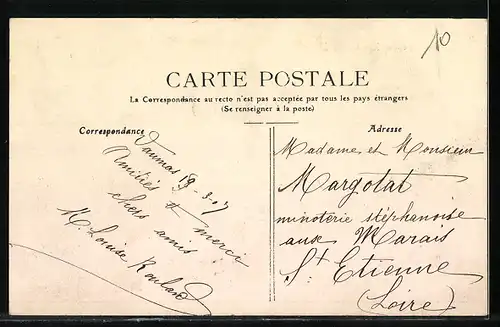 10
CARTE POSTALE
La Correspondance au recto n'est pas acceptée par tous les pays étrangers
(Se renseigner à la poste)
Correspondance
Vaumas 19-3-07
Amitiés & merci
chers amis
M. Louise Rouland
Adresse
Madame et Monsieur
Margotat
minoterie stéphanoise
aux Marais
St Etienne
(Loire)